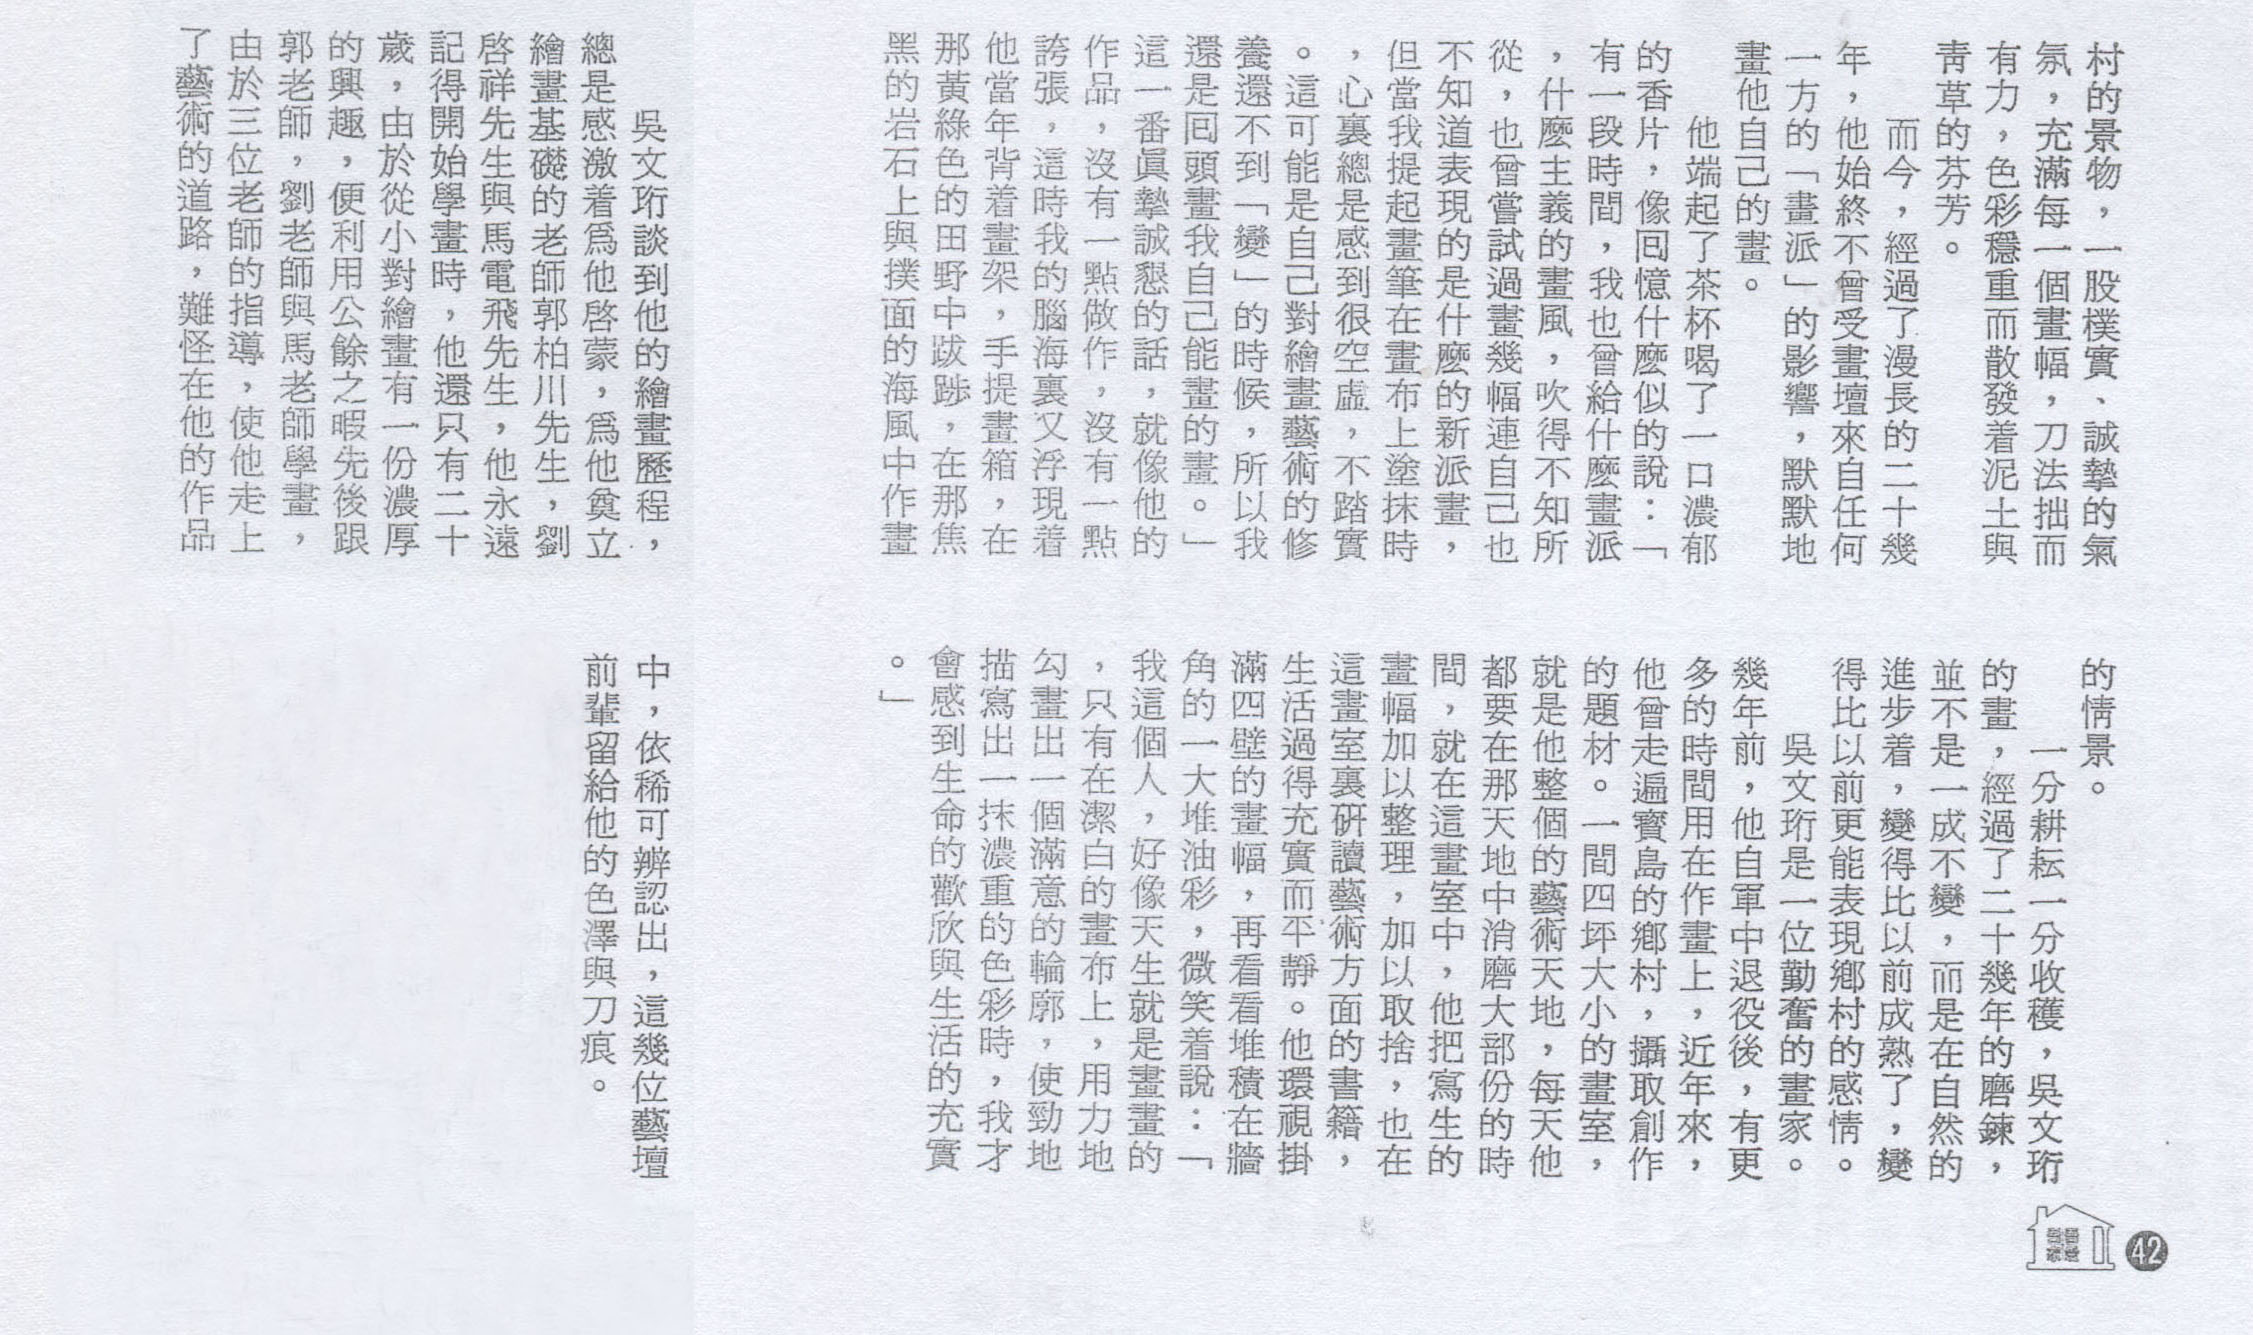 村的景物，一股樸實、誠摯的氣
氛，充滿每一個畫幅，刀法拙而
有力，色彩穩重而散發着泥土與
青草的芬芳。
而今，經過了漫長的二十幾
年，他始終不曾受畫壇來自任何
一方的「畫派」的影響，默默地
畫他自己的畫。
他端起了茶杯喝了一口濃郁
的香片，像回憶什麼似的說：「
有一段時間，我也曾給什麼畫派
，什麼主義的畫風，吹得不知所
從，也曾嘗試過畫幾幅連自己也
不知道表現的是什麼的新派畫，
但當我提起畫筆在畫布上塗抹時
，心裏總是感到很空虛，不踏實
。這可能是自己對繪畫藝術的修
養還不到「變」的時候，所以我
還是回頭畫我自己能畫的畫。」
這一番眞摯誠懇的話，就像他的
作品，沒有一點做作，沒有一點
誇張，這時我的腦海裏又浮現着
他當年背着畫架，手提畫箱，在
那黃綠色的田野中跋踄，在那焦
黑的岩石上與撲面的海風中作畫
的情景。
一分耕耘一分收穫，吳文珩
的畫，經過了二十幾年的磨鍊，
並不是一成不變，而是在自然的
進步着，變得比以前成熟了，變
得比以前更能表現鄉村的感情。
吳文珩是一位勤奮的畫家。
幾年前，他自軍中退役後，有更
多的時間用在作畫上，近年來，
他曾走遍寶島的鄉村，攝取創作
的題材。一間四坪大小的畫室，
就是他整個的藝術天地，每天他
都要在那天地中消磨大部份的時
間，就在這畫室中，他把寫生的
畫幅加以整理，加以取捨，也在
這畫室裏研讀藝術方面的書籍，
生活過得充實而平靜。他環視掛
滿四壁的畫幅，再看看堆積在牆
角的一大堆油彩，微笑着說：「
我這個人，好像天生就是畫畫的
，只有在潔白的畫布上，用力地
勾畫出一個滿意的輪廓，使勁地
描寫出一抹濃重的色彩時，我才
會感到生命的歡欣與生活的充實
。」
吳文珩談到他的繪畫歷程，
總是感激着爲他啓蒙，爲他奠立
繪畫基礎的老師郭柏川先生，劉
啓祥先生與馬電飛先生，他永遠
記得開始學畫時，他還只有二十
歲，由於從小對繪畫有一份濃厚
的興趣，便利用公餘之暇先後跟
郭老師，劉老師與馬老師學畫，
由於三位老師的指導，使他走上
了藝術的道路，難怪在他的作品
中，依稀可辨認出，這幾位藝壇
前輩留給他的色澤與刀痕。
42